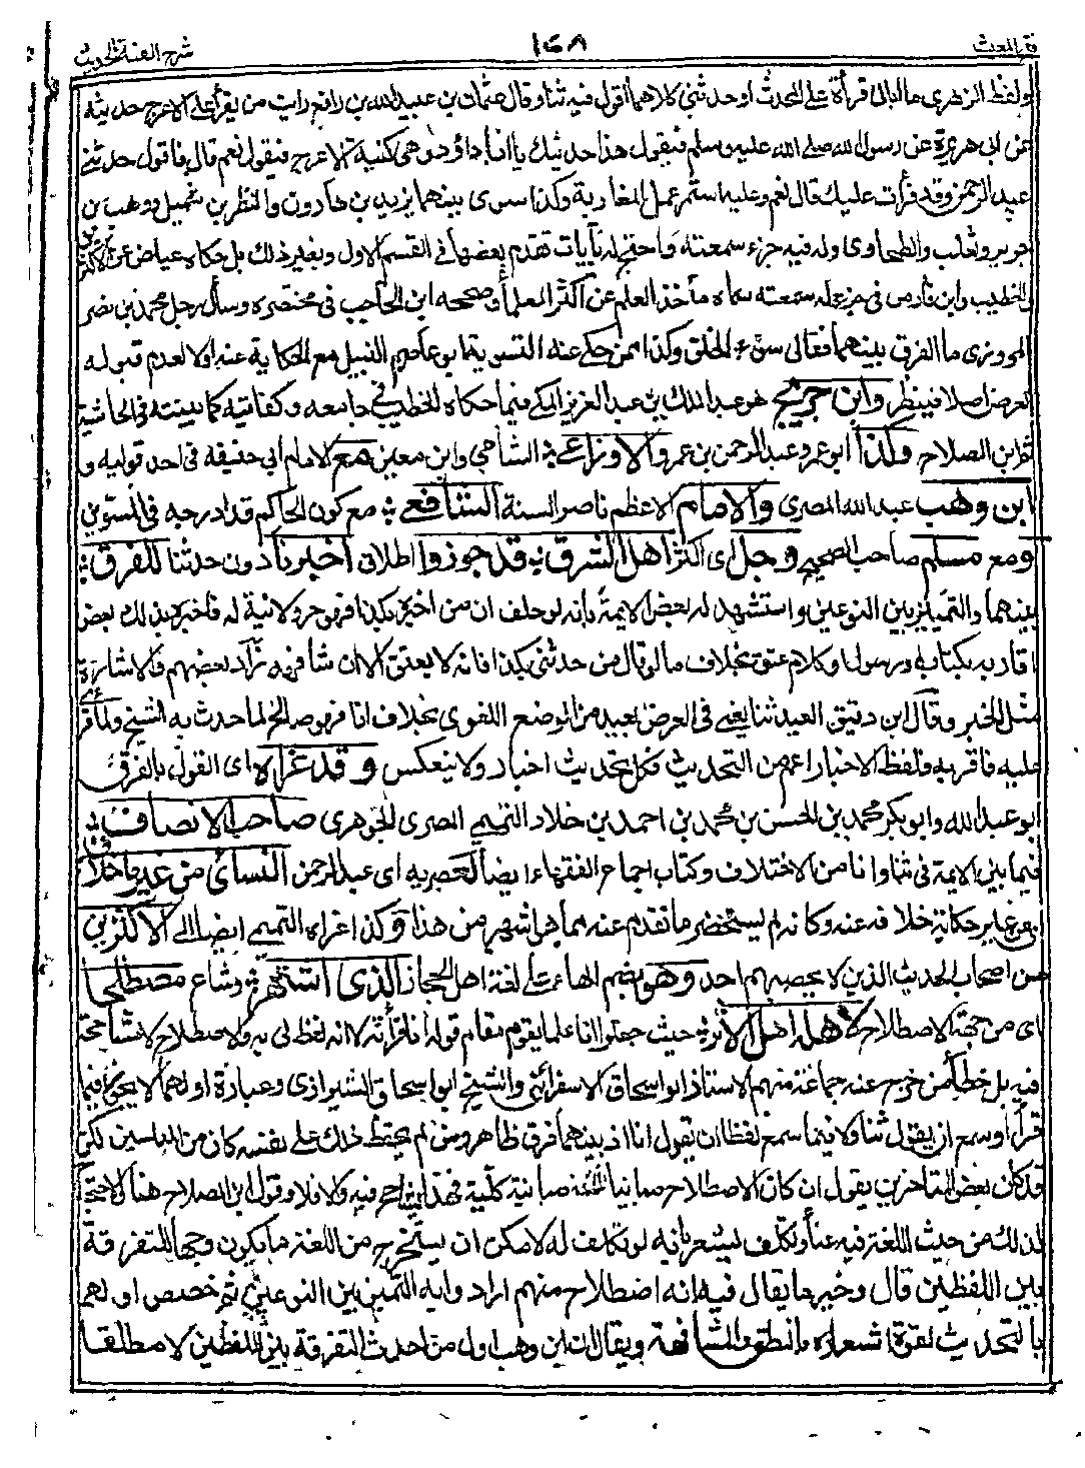 فتح المغيث
١٦٨
شرح الفية الحديث
ولفظ الزهرى ما ابالى قرأة على المحدث او حدثنى كلاهما اقول فيه ثنا وقال عثمان بن عبيد الله بن رافع رايت من يقرأ على الاعرج حديثه
عن ابى هريرة عن رسول الله صلى الله عليه وسلم فيقول هذا حديثك يا ابا داؤد وهى كنية الاعرج فيقول نعم قال فاقول حدثنى
عبد الرحمن وقد قرأت عليك قال نعم وعليه استمر عمل المغاربة وكذا سوى بينهما يزيد بن هارون والنضر بن شميل ووهب بن
جرير وثعلب والطحاوى وله فيه جزء سمعته واحتج له بآيات تقدم بعضها فى القسم الاول وبغير ذلك بل حكاه عياض عن الاكثرين
الخطيب وابن فارس فى جزء له سمعته سماه مأخذ العلم عن اكثر العلماء وصححه ابن الحاجب فى مختصره وسأل رجل محمد بن نصر
المروزى ما الفرق بينهما فقال سوء الخلق وكذا ممن حكى عنه التسوية ابو عاصم النبيل مع الحكاية عنه اولا لعدم قبوله
العرض اصلا فينظر وابن جريج هو عبد الملك بن عبد العزيز المكى فيما حكاه الخطيب فى جامعه وكفايته كما بينته فى الحاشية
ثم ابن الصلاح وكذا ابو عمرو عبد الرحمن بن عمرو الاوزاعى الشامى وابن معين مع الامام ابى حنيفة فى احد قوليه و
ابن وهب عبد الله المصرى والامام الاعظم ناصر السنة الشافعى مع كون الحاكم قد ادرجه فى المسوين
ومع مسلم صاحب الصحيح وجل اى اكثر اهل الشرق قد جوزوا اطلاق اخبرنا دون حدثنا للفرق
بينهما والتمييز بين النوعين واستشهد له بعض الائمة بانه لو حلف ان من اخبرنى بكذا فهو حر ولا نية له فاخبره بذلك بعض
ارقائه بكتاب او رسول او كلام عتق بخلاف ما لو قال من حدثنى بكذا فانه لا يعتق الا ان شافهه زاد بعضهم والاشارة
مثل الخبر وقال ابن دقيق العيد ثنا يعنى فى العرض بعيد من الوضع اللغوى بخلاف انا فهو صالح لما حدث به الشيخ ولما قرئ
عليه فاقر به فلفظ الاخبار اعم من التحديث فكل تحديث اخبار ولا ينعكس وقد عزاه اى القول بالفرق
ابو عبد الله وابو بكر محمد بن الحسن بن محمد بن احمد بن خلاد التميمى المصرى الجوهرى صاحب الانصاف
فيما بين الائمة فى ثنا وانا من الاختلاف وكتاب اجماع الفقهاء ايضا لعصريه ابى عبد الرحمن النسائى من غير ما خلاف
اى من غير حكاية خلاف عنه وكانه لم يستحضر ما تقدم عنه مما هو اشهر من هذا وكذا عزاه التميمى ايضا الى الاكثرين
من اصحاب الحديث الذين لا يحصيهم احد وهو بضم الهاء على لغة اهل الحجاز الذى اشتهر وشاع مصطلحا
اى من جهة الاصطلاح لاهله اهل الاثر حيث جعلوا انا علما يقوم مقام قوله انا قرأته لا انه لفظ لى به ولا اصطلاح لا مشاححة
فيه بل خطأ من خرج عنه جماعة منهم الاستاذ ابو اسحاق الاسفرائنى والشيخ ابو اسحاق الشيرازى وعبارة اولهما لا يجوز فيما
قرأ او سمع ان يقول ثنا ولا فيما سمع لفظا ان يقول انا اذ بينهما فرق ظاهر ومن لم يحفظ ذلك على نفسه كان من المدلسين لكن
قد كان بعض المتأخرين يقول ان كان الاصطلاح مباينا للغة مباينة كلية فهذا يشاحح فيه والا فلا وقول ابن الصلاح هنا والاحتجاج
لذلك من حيث اللغة فيه عناء وتكلف ليشعر بانه لو تكلف له لامكن ان يستخرج من اللغة ما يكون وجها للتفرقة
بين اللفظين قال وخير ما يقال فيه انه اصطلاح منهم ارادوا به التمييز بين النوعين ثم خصص اولهما
بالتحديث لقوة اشعاره بالنطق والمشافهة ويقال ان ابن وهب اول من احدث التفرقة بين اللفظين لا مطلقا